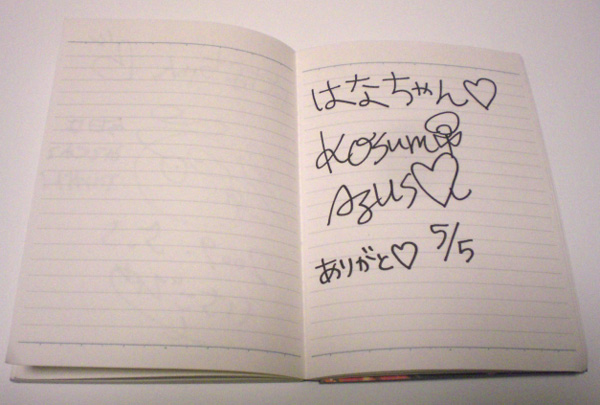 はなちゃん♡
Kozumi
Azusa
ありがと♡ 5/5